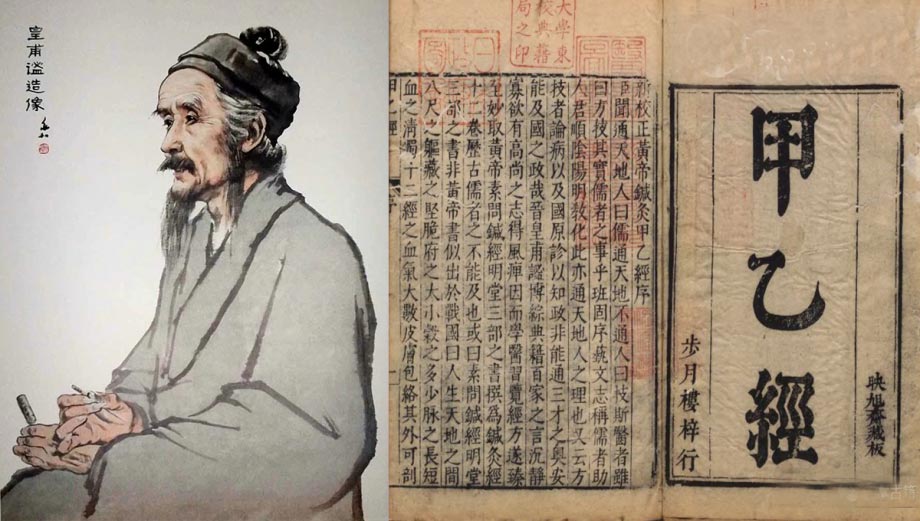 皇甫谧造像
大學東
校典籍
局之印
新校正黃帝鍼灸甲乙經序
臣聞通天地人曰儒通天地不通人曰技斯醫者雖
曰方技其實儒者之事乎班固序藝文志稱儒者助
人君順陰陽明教化此亦通天地人之理也又云方
技者論病以及國原診以知政非能通三才之奧安
能及國之政哉晉皇甫謐博綜典籍百家之言沉靜
寡欲有高尚之志得風痺因而學醫習覽經方遂臻
至妙取黃帝素問鍼經明堂三部之書撰爲鍼灸經
十二卷歷古儒者之不能及也或曰素問鍼經明堂
三部之書非黃帝書似出於戰國曰人生天地之間
八尺之軀藏之堅脆府之大小穀之多少脉之長短
血之淸濁十二經之血氣大數皮膚包絡其外可剖
甲乙經 序
映旭齋藏板
甲乙經
步月樓梓行